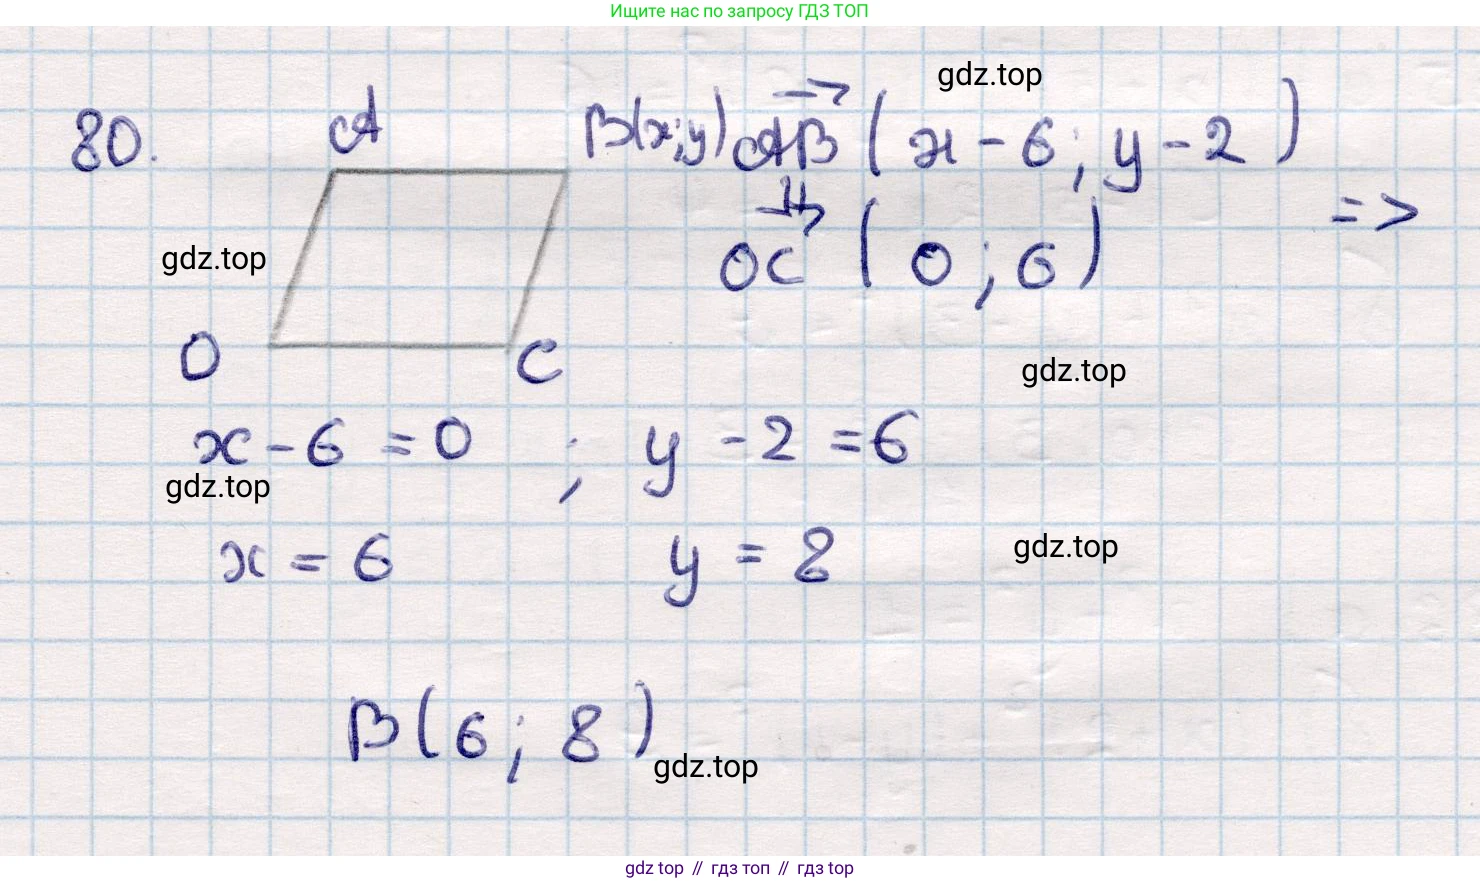 Ищите нас по запросу ГДЗ ТОП
gdz.top
80. A B(x;y) AB (x-6; y-2)
=>
OC (0; 6)
gdz.top
O C
gdz.top
x-6=0 ; y-2=6
gdz.top
x=6 y=8
gdz.top
B(6; 8)
gdz.top
gdz top // гдз топ // гдз top